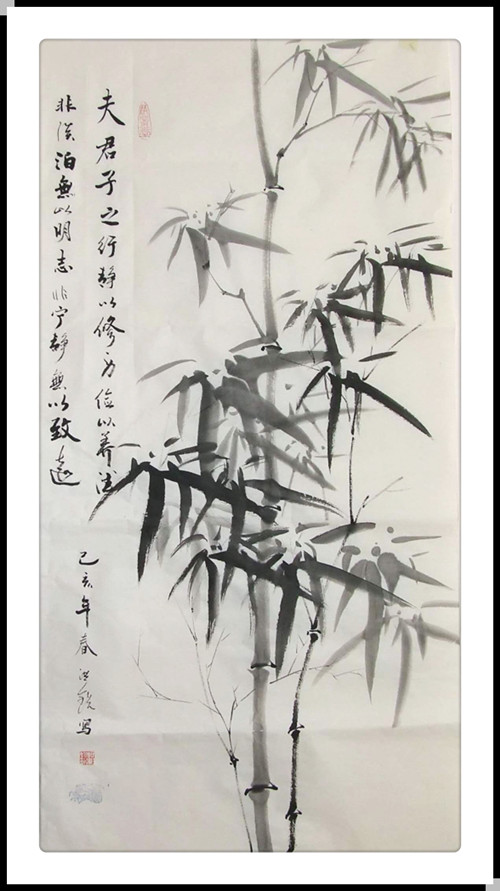 夫君子之行静以修身俭以养德
非淡泊無以明志非宁静無以致远
己亥年春
写